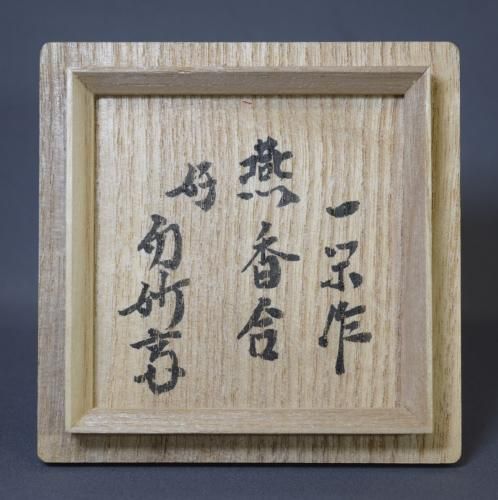 一栄作
燕香合
好
而妙斎